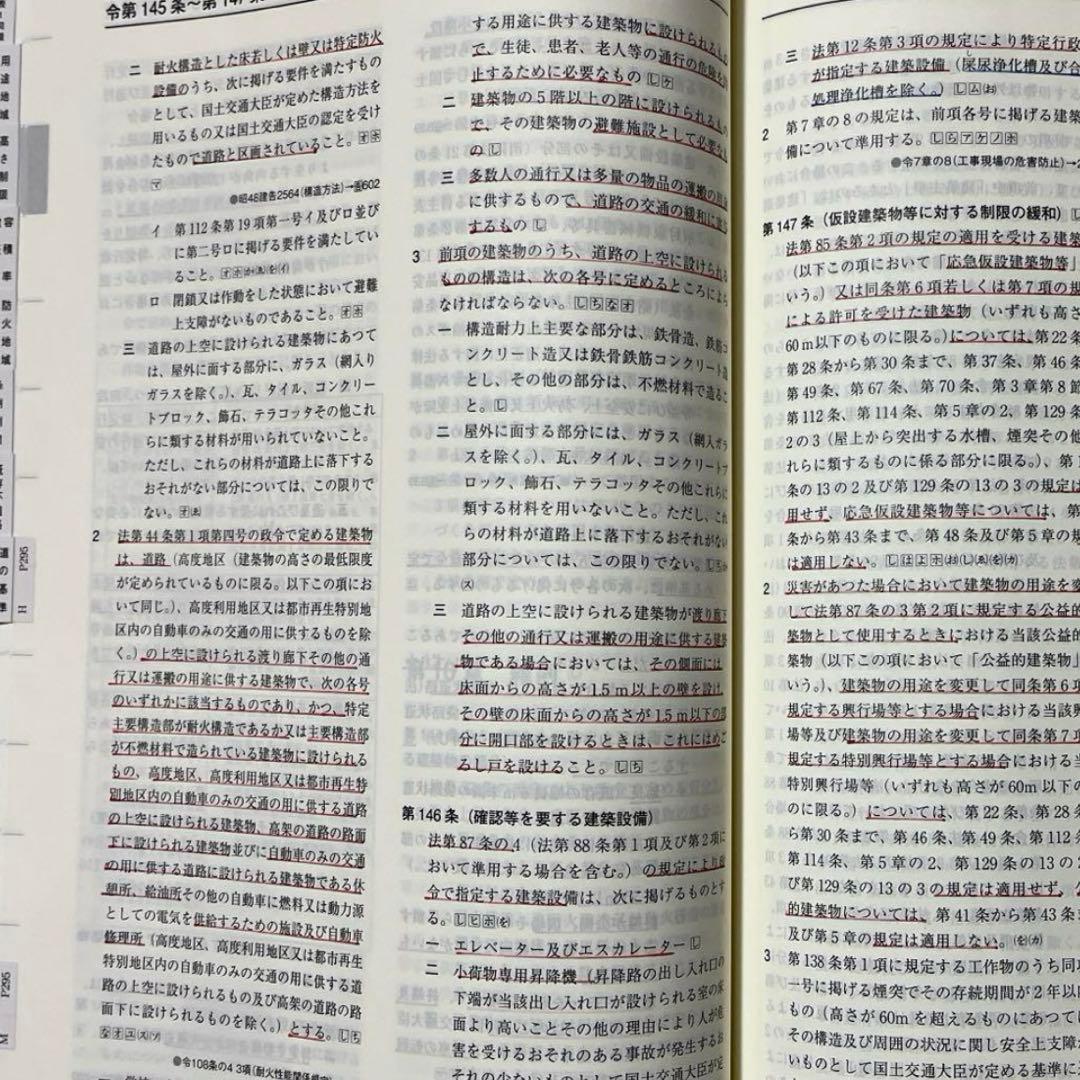 令第145条～第147条
二 耐火構造とした床若しくは壁又は特定防火
設備のうち、次に掲げる要件を満たすもの
として、国土交通大臣が定めた構造方法を
用いるもの又は国土交通大臣の認定を受け
たもので道路と区画されていること。
●昭48建告2564(構造方法)→ 602
イ 第112条第19項第一号イ及びロ並び
に第二号ロに掲げる要件を満たしてい
ること。
ロ 閉鎖又は作動をした状態において避難
上支障がないものであること。
三 道路の上空に設けられる建築物にあつて
は、屋外に面する部分に、ガラス(網入り
ガラスを除く。)、瓦、タイル、コンクリー
トブロック、飾石、テラコッタその他これ
らに類する材料が用いられていないこと。
ただし、これらの材料が道路上に落下する
おそれがない部分については、この限りで
ない。
2 法第44条第1項第四号の政令で定める建築物
は、道路(高度地区(建築物の高さの最低限度
が定められているものに限る。以下この項にお
いて同じ。)、高度利用地区又は都市再生特別地
区内の自動車のみの交通の用に供するものを除
く。)の上空に設けられる渡り廊下その他の通
行又は運搬の用途に供する建築物で、次の各号
のいずれかに該当するものであり、かつ、特定
主要構造部が耐火構造であるか又は主要構造部
が不燃材料で造られている建築物に設けられる
もの、高度地区、高度利用地区又は都市再生特
別地区内の自動車のみの交通の用に供する道路
の上空に設けられる建築物、高架の道路の路面
下に設けられる建築物並びに自動車のみの交通
の用に供する道路に設けられる建築物である休
憩所、給油所その他の自動車に燃料又は動力源
としての電気を供給するための施設及び自動車
修理所(高度地区、高度利用地区又は都市再生
特別地区内の自動車のみの交通の用に供する道
路の上空に設けられるもの及び高架の道路の路
面下に設けられるものを除く。)とする。
●令108条の4 3項(耐火性能関係規定)
する用途に供する建築物に設けられるもの
で、生徒、患者、老人等の通行の危険を防
止するために必要なもの
二 建築物の5階以上の階に設けられるもの
で、その建築物の避難施設として必要なも
の
三 多数人の通行又は多量の物品の運搬の用途
に供するもので、道路の交通の緩和に寄与
するもの
3 前項の建築物のうち、道路の上空に設けられる
ものの構造は、次の各号に定めるところによら
なければならない。
一 構造耐力上主要な部分は、鉄骨造、鉄筋コ
ンクリート造又は鉄骨鉄筋コンクリート造
とし、その他の部分は、不燃材料で造るこ
と。
二 屋外に面する部分には、ガラス(網入ガラ
スを除く。)、瓦、タイル、コンクリートブ
ロック、飾石、テラコッタその他これらに
類する材料を用いないこと。ただし、これ
らの材料が道路上に落下するおそれがない
部分については、この限りでない。
三 道路の上空に設けられる建築物が渡り廊下
その他の通行又は運搬の用途に供する建築
物である場合においては、その側面には、
床面からの高さが1.5m以上の壁を設け、
その壁の床面からの高さが1.5m以下の部
分に開口部を設けるときは、これにはめご
ろし戸を設けること。
第146条(確認等を要する建築設備)
法第87条の4(法第88条第1項及び第2項に
おいて準用する場合を含む。)の規定により政
令で指定する建築設備は、次に掲げるものとす
る。
一 エレベーター及びエスカレーター
二 小荷物専用昇降機(昇降路の出し入れ口の
下端が当該出し入れ口が設けられる室の床
面より高いことその他の理由により人が危
害を受けるおそれのある事故が発生するお
それの少ないものとして国土交通大臣が定
三 法第12条第3項の規定により特定行政
が指定する建築設備(屎尿浄化槽及び合
処理浄化槽を除く。)
2 第7章の8の規定は、前項各号に掲げる建築
備について準用する。
●令7章の8(工事現場の危害防止)→
第147条(仮設建築物等に対する制限の緩和)
法第85条第2項の規定の適用を受ける建築
(以下この項において「応急仮設建築物等」
いう。)又は同条第6項若しくは第7項の規
による許可を受けた建築物(いずれも高さ
60m以下のものに限る。)については、第22条
第28条から第30条まで、第37条、第46条
第49条、第67条、第70条、第3章第8節
第112条、第114条、第5章の2、第129条
2の3(屋上から突出する水槽、煙突その他
れらに類するものに係る部分に限る。)、第1
条の13の2及び第129条の13の3の規定は
用せず、応急仮設建築物等については、第
条から第43条まで、第48条及び第5章の規
は適用しない。
2 災害があつた場合において建築物の用途を変
して法第87条の3第2項に規定する公益的
築物として使用するときにおける当該公益的
築物(以下この項において「公益的建築物」
いう。)、建築物の用途を変更して同条第6項
規定する興行場等とする場合における当該興
場等及び建築物の用途を変更して同条第7項
規定する特別興行場等とする場合における当
特別興行場等(いずれも高さが60m以下の
のに限る。)については、第22条、第28条
ら第30条まで、第46条、第49条、第112条
第114条、第5章の2、第129条の13の2
び第129条の13の3の規定は適用せず、公
的建築物については、第41条から第43条
及び第5章の規定は適用しない。
3 第138条第1項に規定する工作物のうち同項
一号に掲げる煙突でその存続期間が2年以
もの(高さが60mを超えるものにあつては
その構造及び周囲の状況に関し安全上支障が
いものとして国土交通大臣が定める基準に